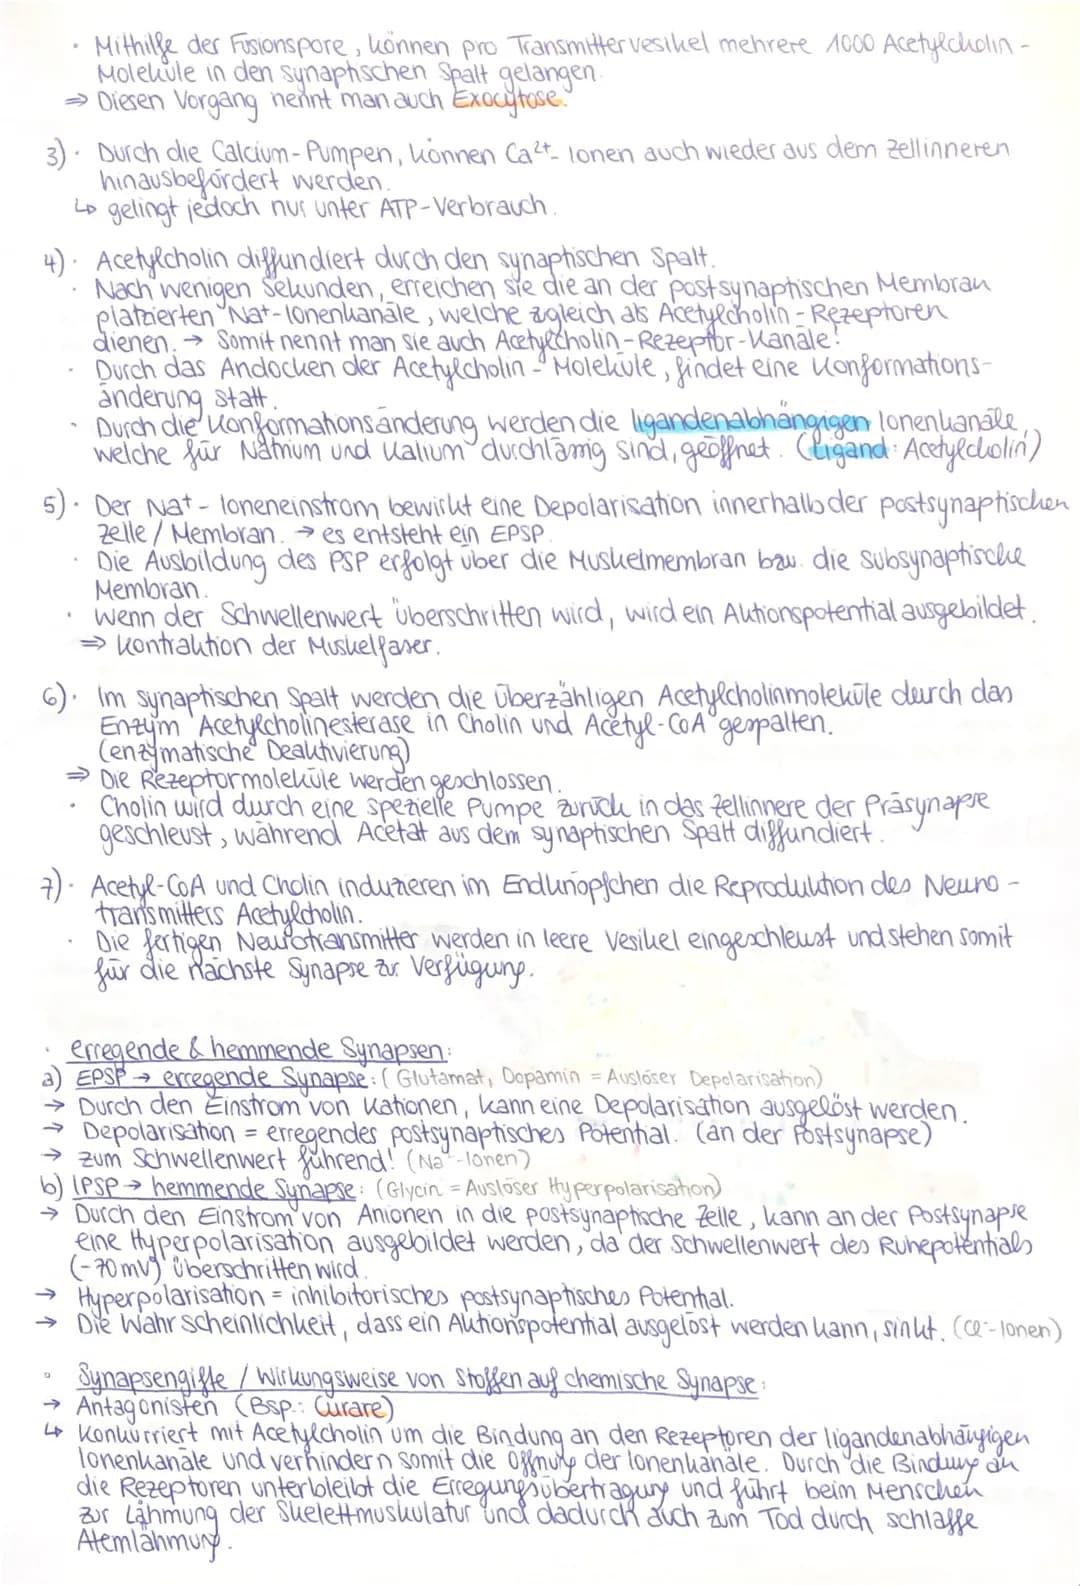 · Mithilfe der Fusionspore, können pro Transmittervesikel mehrere 1000 Acetylcholin-
Moleküle in den synaptischen Spalt gelangen.
⇒ Diesen Vorgang nennt man auch Exocytose.
3) · Durch die Calcium-Pumpen, können Ca²⁺- Ionen auch wieder aus dem Zellinneren
hinausbefördert werden.
↳ gelingt jedoch nur unter ATP-Verbrauch.
4) · Acetylcholin diffundiert durch den synaptischen Spalt.
· Nach wenigen Sekunden, erreichen sie die an der postsynaptischen Membran
platzierten Na+-Ionenkanäle, welche zgleich als Acetylcholin-Rezeptoren
dienen. → Somit nennt man sie auch Acetylcholin-Rezeptor-Kanäle!
· Durch das Andocken der Acetylcholin-Moleküle, findet eine Konformations-
änderung statt.
· Durch die Konformationsänderung werden die ligandenabhängigen Ionenkanäle,
welche für Natrium und Kalium durchlässig sind, geöffnet. (Ligand: Acetylcholin)
5) · Der Na+- Ioneneinstrom bewirkt eine Depolarisation innerhalb der postsynaptischen
Zelle / Membran. → es entsteht ein EPSP.
· Die Ausbildung des PSP erfolgt über die Muskelmembran bzw. die subsynaptische
Membran.
· Wenn der Schwellenwert überschritten wird, wird ein Aktionspotential ausgebildet.
⇒ Kontraktion der Muskelfaser.
6) · Im synaptischen Spalt werden die überzähligen Acetylcholinmoleküle durch das
Enzym Acetylcholinesterase in Cholin und Acetyl-CoA gespalten.
(enzymatische Deaktivierung)
⇒ Die Rezeptormoleküle werden geschlossen.
· Cholin wird durch eine spezielle Pumpe zurück in das Zellinnere der Präsynapse
geschleust, während Acetat aus dem synaptischen Spalt diffundiert.
7) · Acetyl-CoA und Cholin induzieren im Endknöpfchen die Reproduktion des Neuro-
transmitters Acetylcholin.
· Die fertigen Neurotransmitter werden in leere Vesikel eingeschleust und stehen somit
für die nächste Synapse zur Verfügung.
· erregende & hemmende Synapsen:
a) EPSP → erregende Synapse: (Glutamat, Dopamin = Auslöser Depolarisation)
→ Durch den Einstrom von Kationen, kann eine Depolarisation ausgelöst werden.
→ Depolarisation = erregendes postsynaptisches Potential. (an der Postsynapse)
→ zum Schwellenwert führend! (Na+-Ionen)
b) IPSP → hemmende Synapse: (Glycin = Auslöser Hyperpolarisation)
→ Durch den Einstrom von Anionen in die postsynaptische Zelle, kann an der Postsynapse
eine Hyperpolarisation ausgebildet werden, da der Schwellenwert des Ruhepotentials
(-70mV) überschritten wird.
→ Hyperpolarisation = inhibitorisches postsynaptisches Potential.
→ Die Wahrscheinlichkeit, dass ein Aktionspotential ausgelöst werden kann, sinkt. (Cl⁻-Ionen)
◦ Synapsengifte / Wirkungsweise von Stoffen auf chemische Synapse:
→ Antagonisten (Bsp.: Curare)
↳ Konkurriert mit Acetylcholin um die Bindung an den Rezeptoren der ligandenabhängigen
Ionenkanäle und verhindern somit die Öffnung der Ionenkanäle. Durch die Bindung an
die Rezeptoren unterbleibt die Erregungsübertragung und führt beim Menschen
zur Lähmung der Skelettmuskulatur und dadurch auch zum Tod durch schlaffe
Atemlähmung.